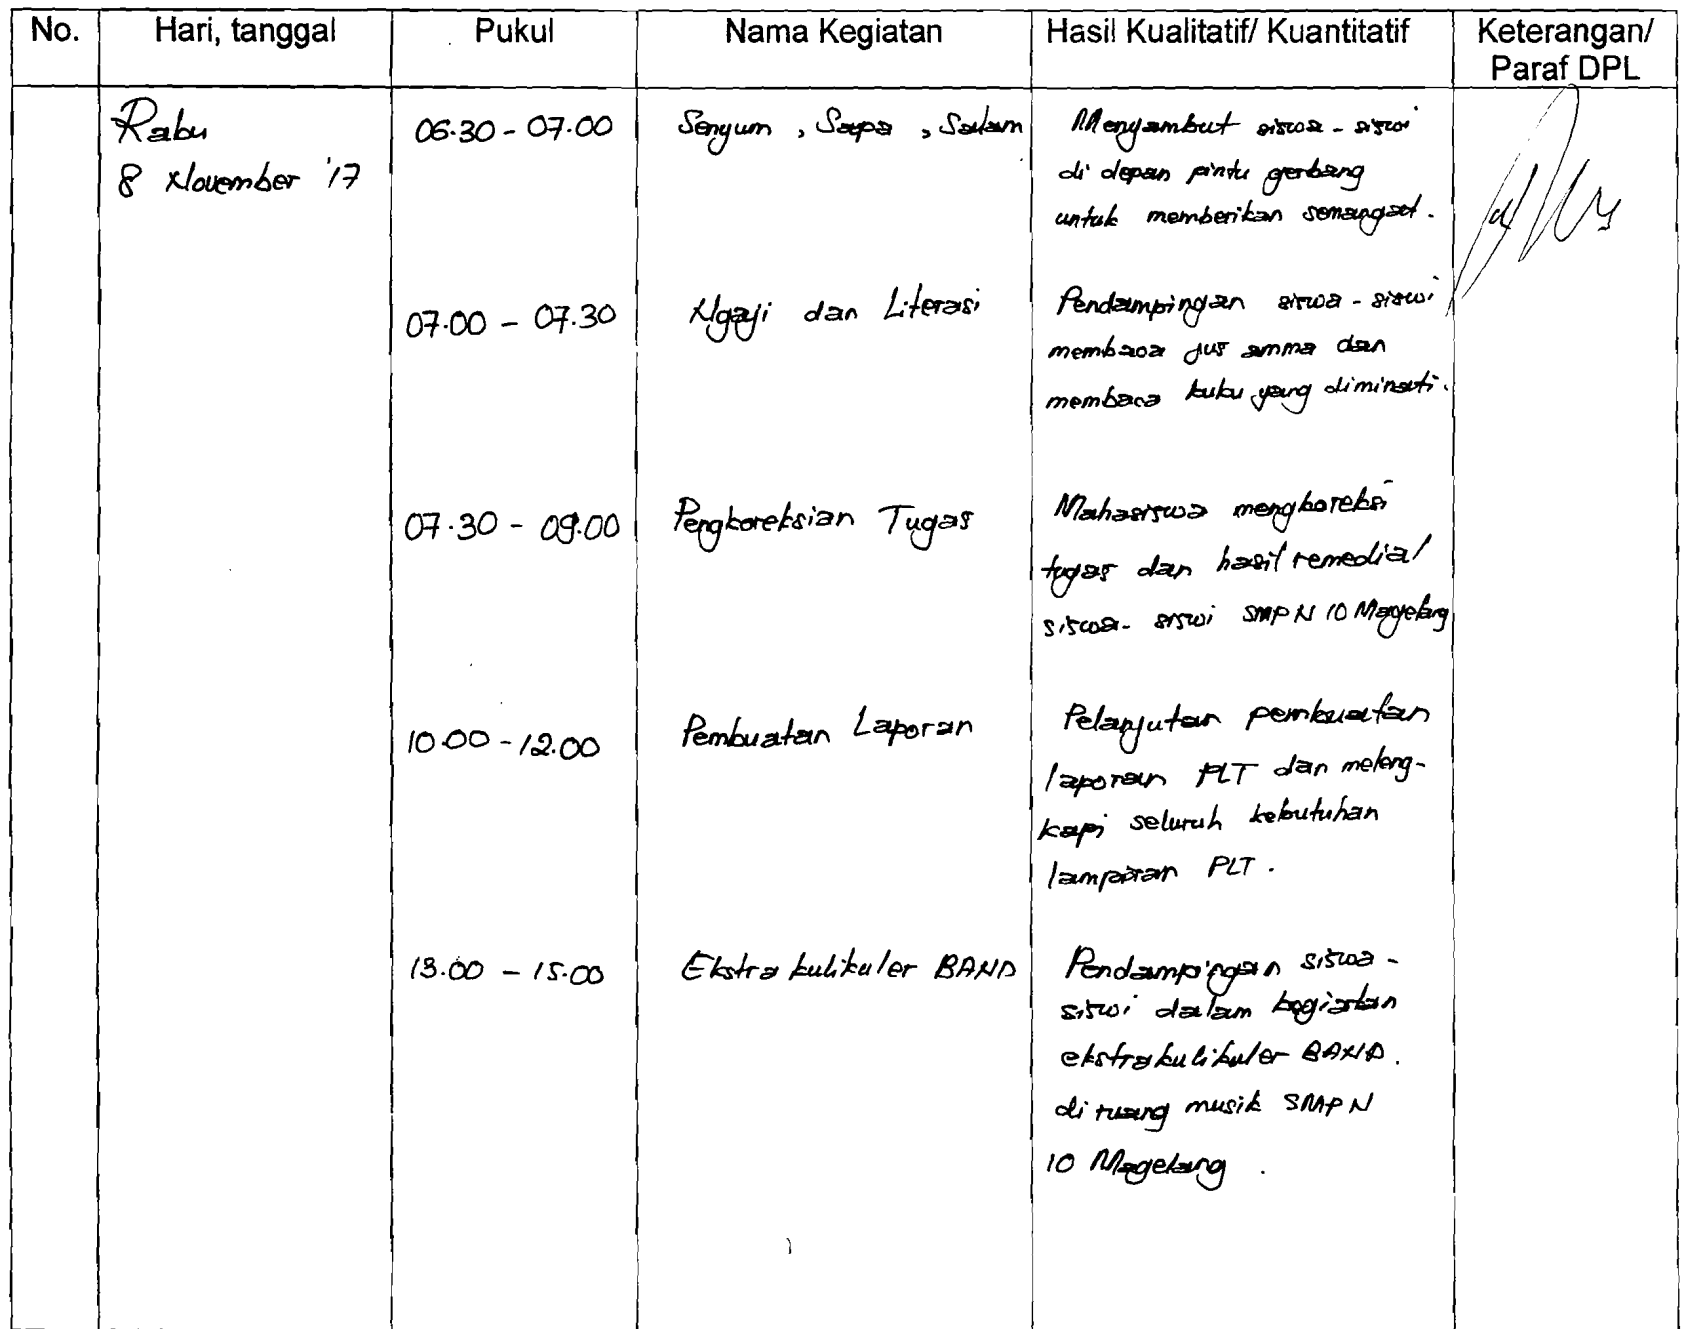 No. Hari, tanggal Pukul Nama Kegiatan Hasil Kualitatif/ Kuantitatif Keterangan/
Paraf DPL
Rabu 06.30 - 07.00 Senyum, Sapa, Salam Menyambut siswa - siswi
8 November '17 di depan pintu gerbang
untuk memberikan semangat.
07.00 - 07.30 Ngaji dan Literasi Pendampingan siswa - siswi
membaca jus amma dan
membaca buku yang diminati.
07.30 - 09.00 Pengkoreksian Tugas Mahasiswa mengkoreksi
tugas dan hasil remedial
siswa - siswi SMP N 10 Magelang
10.00 - 12.00 Pembuatan Laporan Pelanjutan pembuatan
laporan PLT dan meleng-
kapi seluruh kebutuhan
lampiran PLT.
13.00 - 15.00 Ekstra kulikuler BAND Pendampingan siswa -
siswi dalam kegiatan
ekstrakulikuler BAND.
di ruang musik SMP N
10 Magelang.